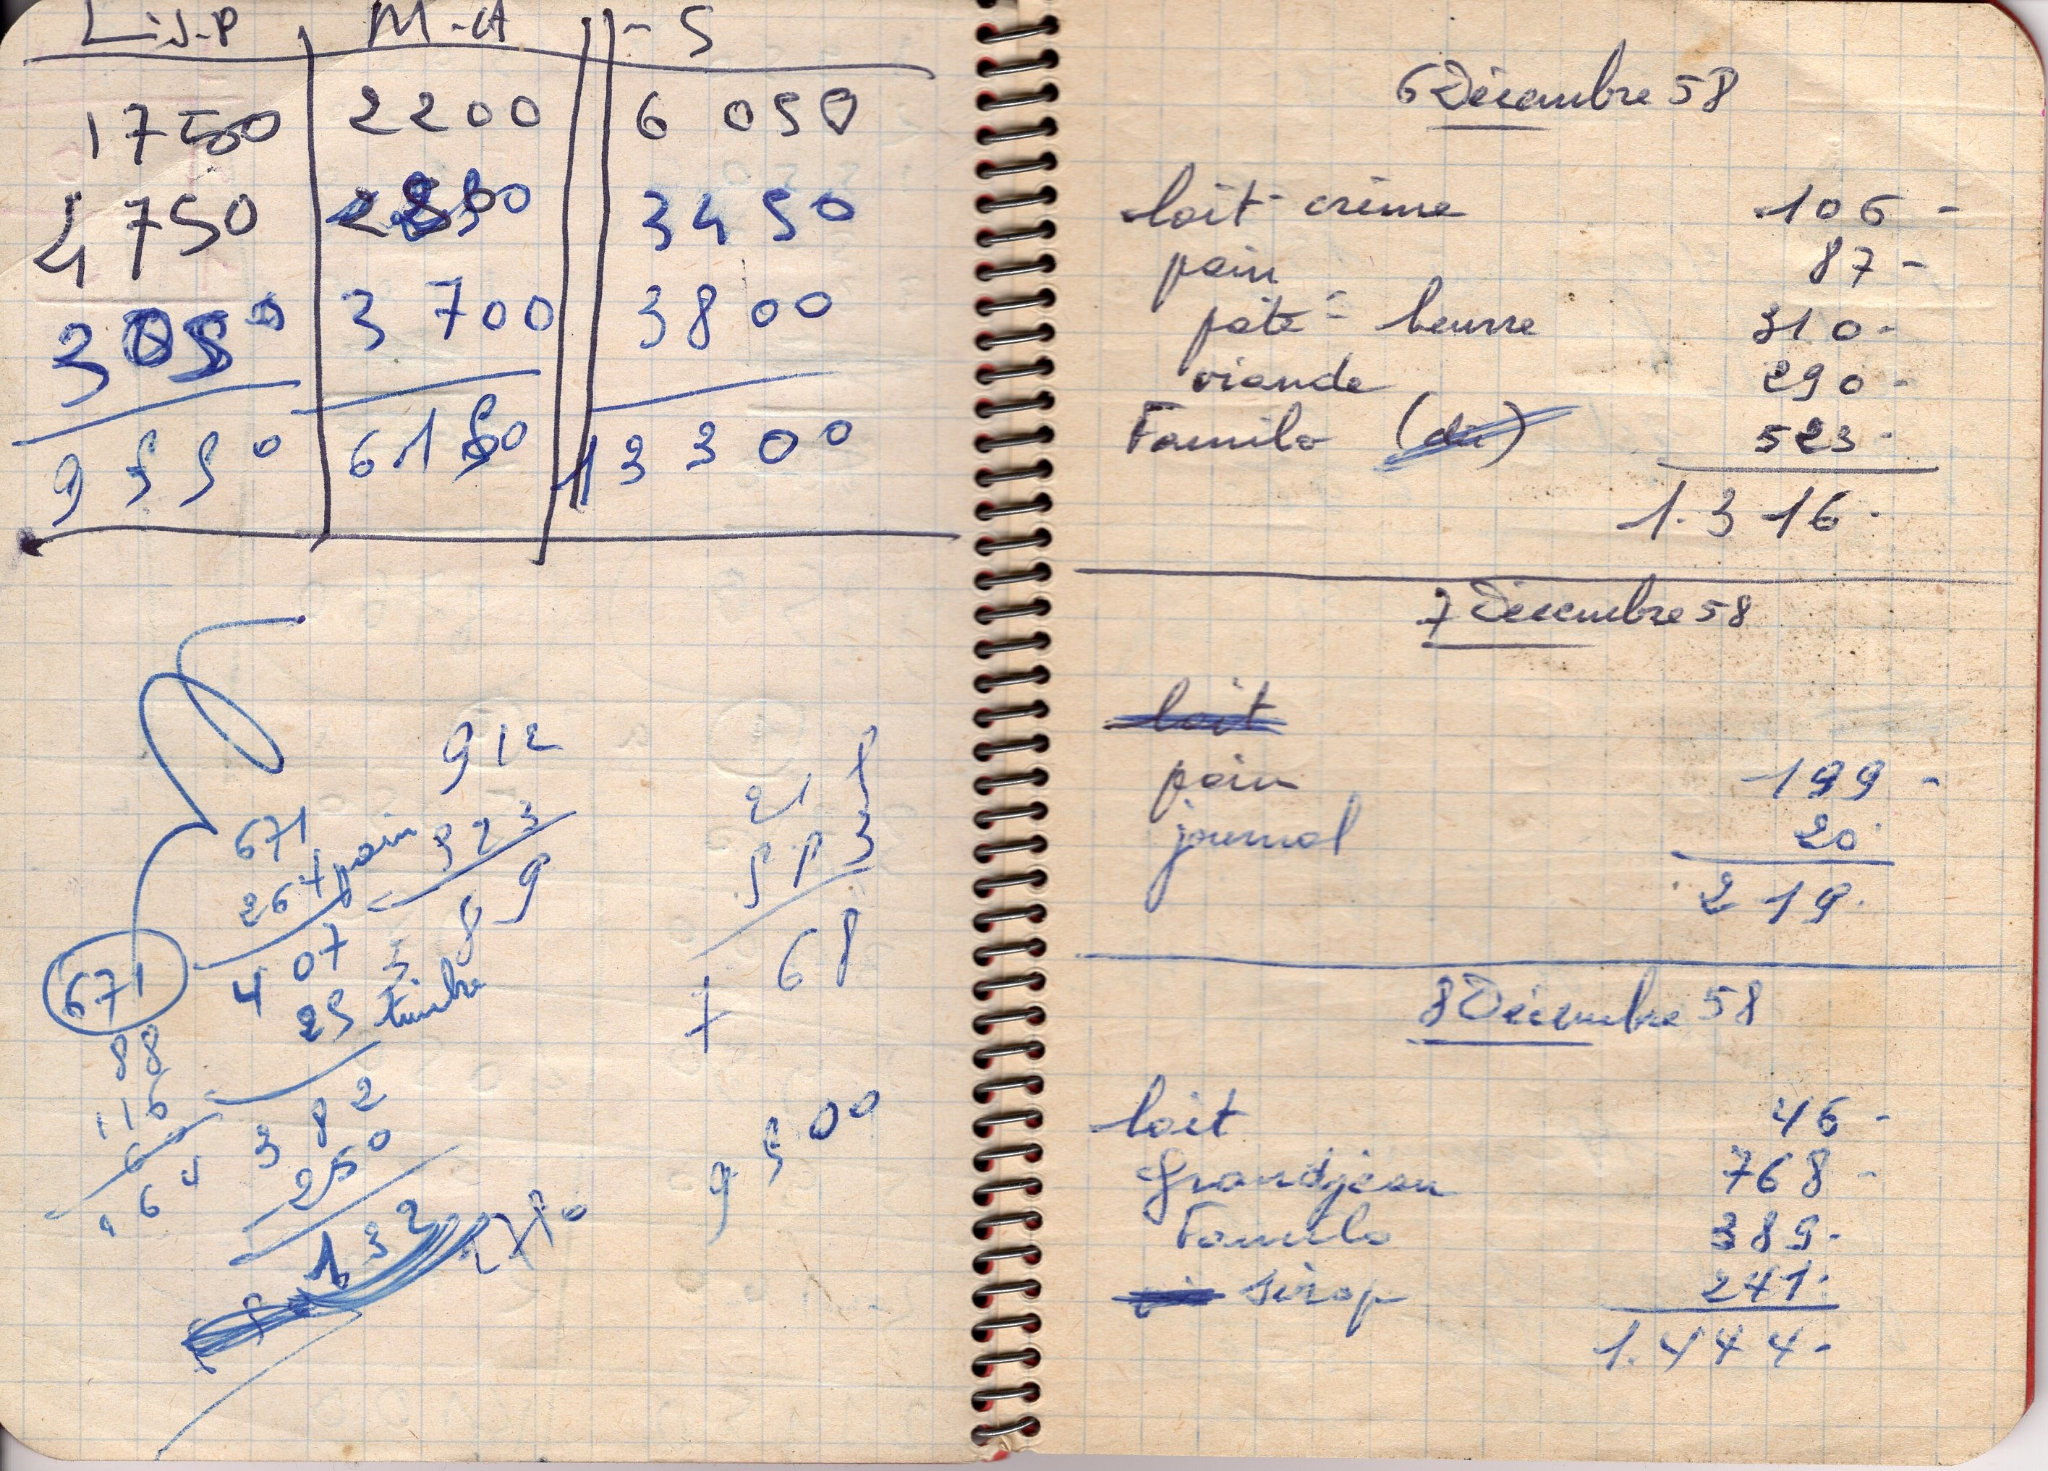 M-A - S
1750 2200 6050
4750 3450
3050 3700 3800
9550 61 13300
912
523
389
671
264 pain
407
25 timbre
382
250
132
671
88
116
7 68
9500
6 Décembre 58
lait - crème 106 -
pain 87 -
pâté - beurre 310 -
viande 290 -
Familo (dû) 523 -
1.316 -
7 Décembre 58
lait
pain 199 -
journal 20 -
219 -
8 Décembre 58
lait 46 -
Grandjean 768 -
Familo 389 -
sirop 241 -
1.444 -